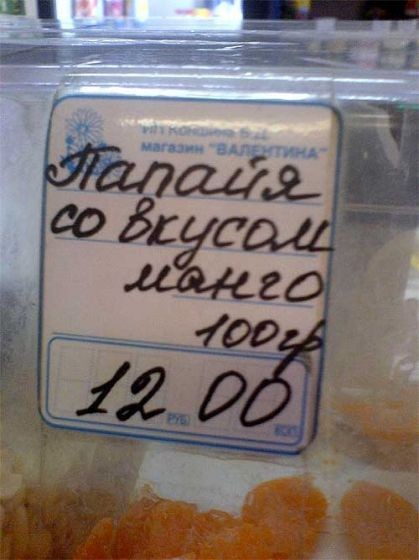 ИП Коншина В.Д.
магазин "ВАЛЕНТИНА"
Папайя
со вкусом
манго
100гр
12 00
РУБ КОП